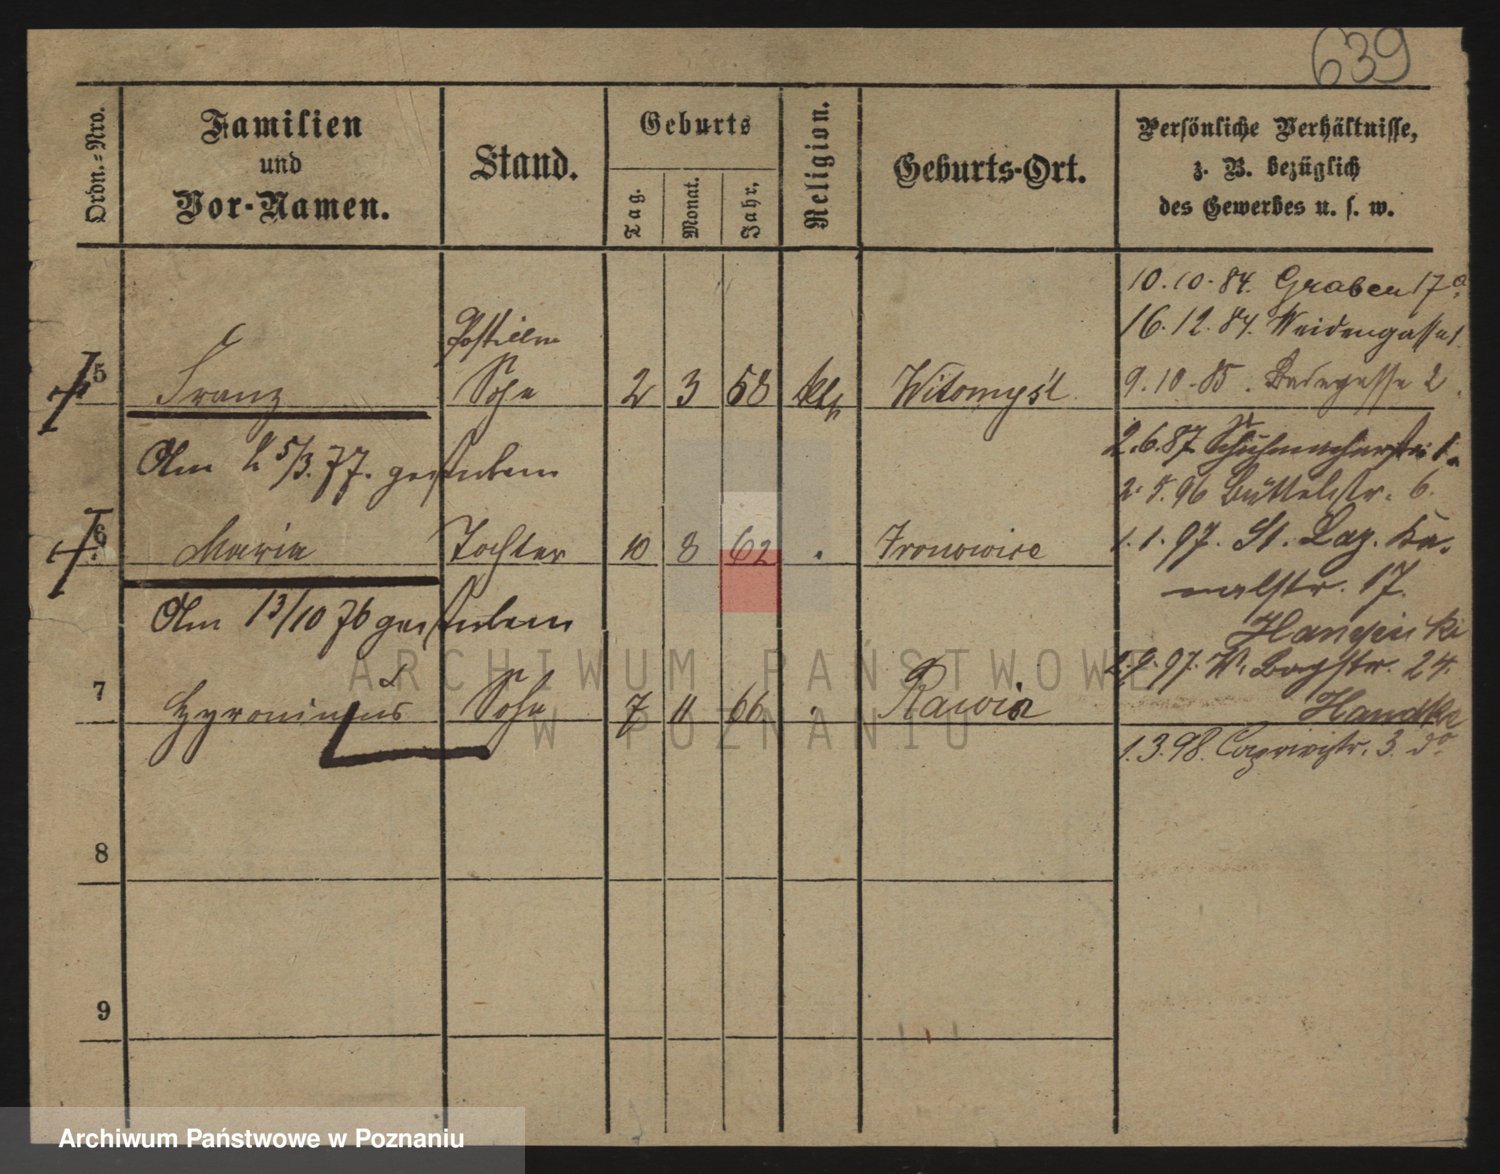 639
Ordn.=Nro.
Familien
und
Vor-Namen.
Stand.
Geburts
Tag.
Monat.
Jahr.
Religion.
Geburts-Ort.
Persönliche Verhältnisse,
z. B. bezüglich
des Gewerbes u. s. w.
10.10.84. Graben 17a
16.12.84. Weidengasse 1.
5 Franz Postillon Sohn 2 3 58 kth Witomyśl
9.10.85. Badegasse 2.
Am 25/3.77. gestorben
2.6.87. Schuhmacherstr. 1.
2.5.96 Büttelstr. 6.
6 Maria Tochter 10 8 62 Tronowice
1.1.97. St. Laz. Ka-
nalstr. 17.
Am 13/10 76 gestorben
97. W. 24.
7 Hyronimus Sohn 7 11 66 Rawicz
Handke
1.3.98. 3. do
8
9
ARCHIWUM PAŃSTWOWE
W POZNANIU
Archiwum Państwowe w Poznaniu